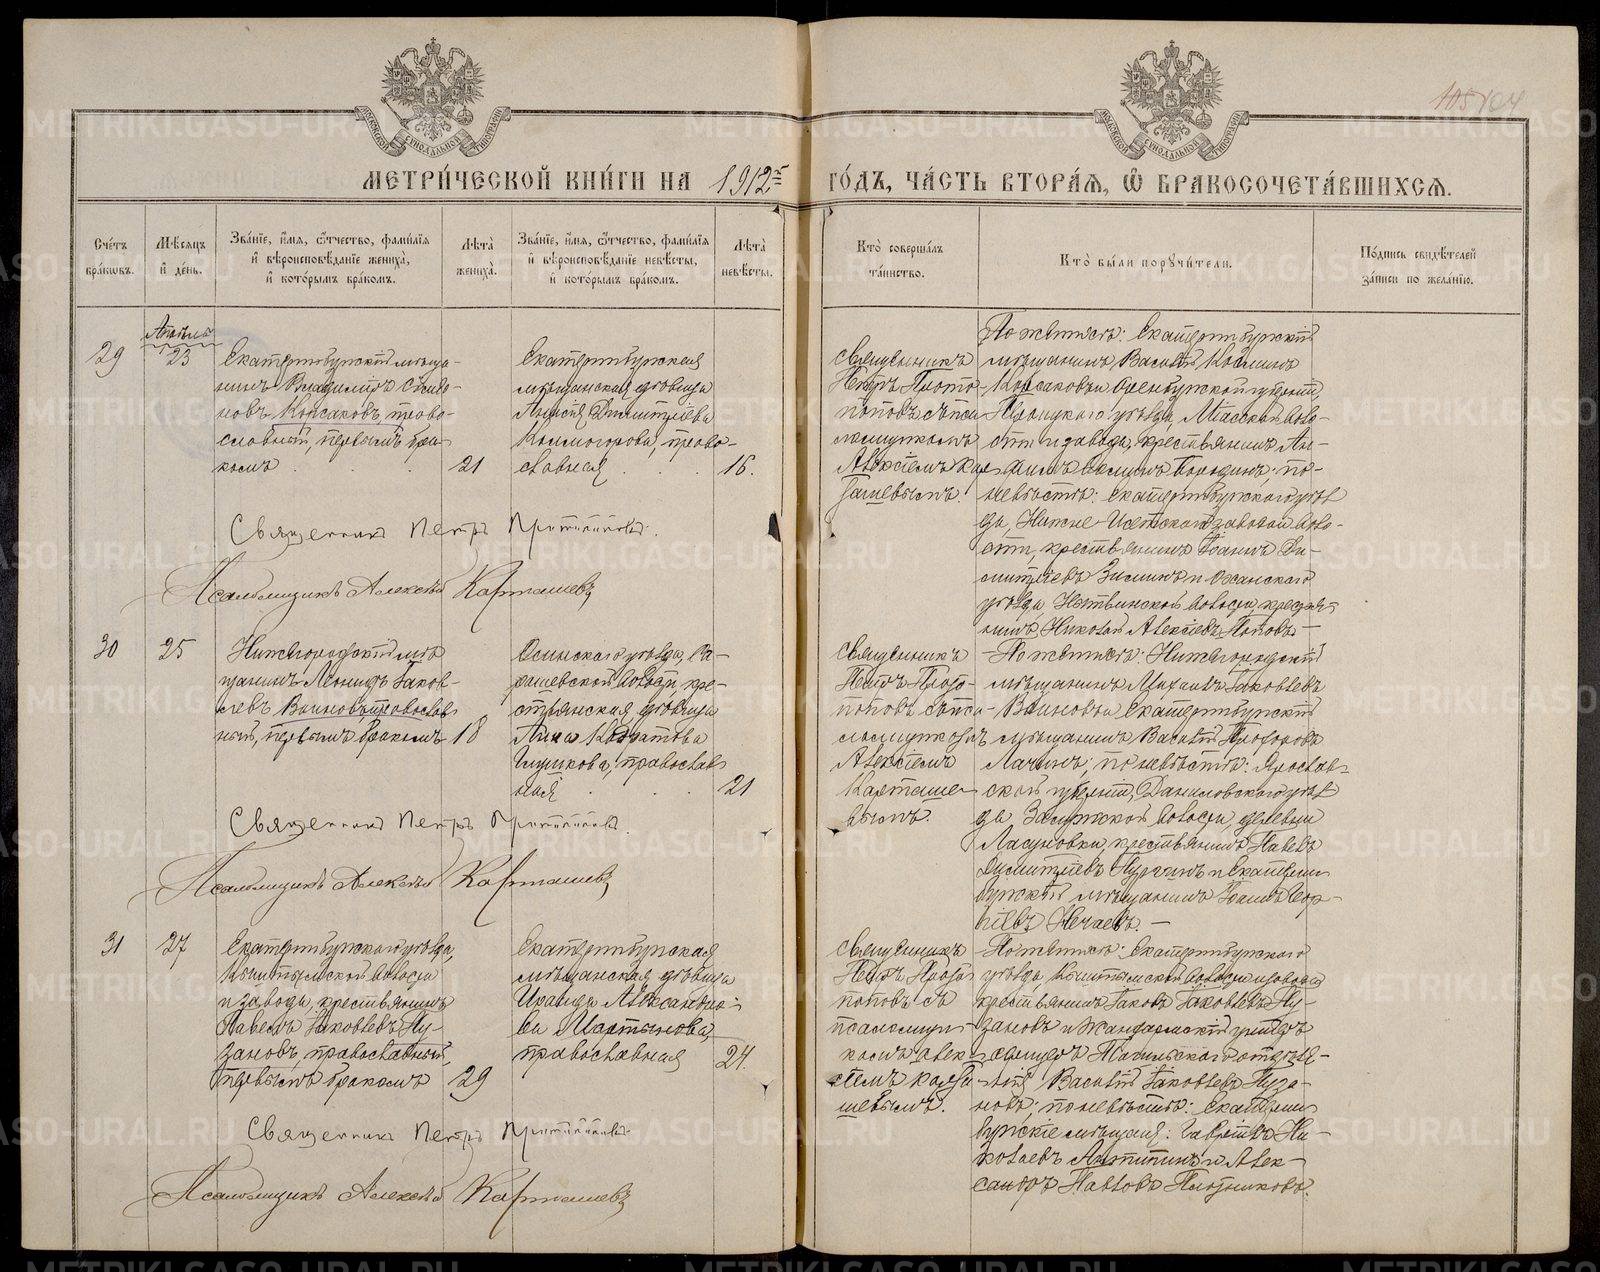 105 104
МОСКОВСКОЙ СѴНОДАЛЬНОЙ ТИПОГРАФІИ
МОСКОВСКОЙ СѴНОДАЛЬНОЙ ТИПОГРАФІИ
МЕТРИ́ЧЕСКОЙ КНИ́ГИ НА 1912 ГО́ДЪ, ЧА́СТЬ ВТОРА́Я, Ѽ БРАКОСОЧЕТА́ВШИХСЯ.
Сче́тъ бра́кωвъ.
Мѣ́сяцъ и҆ де́нь.
Зва́нїе, и҆́мя, ѻ҆́тчество, фами́лїя
и҆ вѣроисповѣ́данїе жениха̀,
и҆ кото́рымъ бра́комъ.
Лѣ́та жениха̀.
Зва́нїе, и҆́мя, ѻ҆́тчество, фами́лїя
и҆ вѣроисповѣ́данїе невѣ́сты,
и҆ кото́рымъ бра́комъ.
Лѣ́та невѣ́сты.
Кто̀ соверша́лъ
та́инство.
Кто̀ бы́ли порꙋчи́тели.
По́дпись свидѣ́телей
за́писи по жела́нїю.
29
Апрѣль
23
Екатеринбургскій мѣща-
нинъ Владиміръ
новъ Корсаковъ, право-
славный, первымъ бра-
комъ
21
Екатеринбургская
мѣщанская дѣвица
Димитріева
Колмогорова, право-
славная
16.
Священникъ
Петръ Прото-
поповъ съ пса-
ломщикомъ
Алексіемъ Кар-
ташевымъ.
По женихѣ: Екатеринбургскій
мѣщанинъ Василій Косминъ
Корсаковъ и Оренбургской губерніи,
Троицкаго уѣзда, Міасской воло-
сти и завода, крестьянинъ
Бородинъ; по
невѣстѣ: Екатеринбургскаго уѣз-
да, Нижне-Исетскаго завода воло-
сти, крестьянинъ Іоаннъ Ди-
митріевъ Зиминъ и Оханскаго
уѣзда, Нытвинской волости, крестья-
нинъ Николай Алексіевъ Поповъ.
Священникъ Петръ Протопоповъ.
Псаломщикъ Алексѣй Карташевъ
30
25
Нижегородскій мѣ-
щанинъ Леонидъ Іаков-
левъ Воиновъ, православ-
ный, первымъ бракомъ
18
Осинскаго уѣзда, Са-
рашевской волости, кре-
стьянская дѣвица
Анна
Глушкова, православ-
ная
21
Священникъ
Петръ Прото-
поповъ съ пса-
ломщикомъ
Алексіемъ
Карташе-
вымъ.
По женихѣ: Нижегородскій
мѣщанинъ Михаилъ Іаковлевъ
Воиновъ и Екатеринбургскій
мѣщанинъ Василій Прохоровъ
Лачинъ; по невѣстѣ: Ярослав-
ской губерніи, Даниловскаго уѣз-
да, волости, деревни
крестьянинъ Павелъ
Димитріевъ и Екатерин-
бургскій мѣщанинъ Іоаннъ Геор-
гіевъ Нечаевъ.
Священникъ Петръ Протопоповъ.
Псаломщикъ Алексѣй Карташевъ
31
27
Екатеринбургскаго уѣзда,
Кыштымской волости
и завода, крестьянинъ
Павелъ Іаковлевъ Пу-
зановъ, православный,
первымъ бракомъ
29
Екатеринбургская
мѣщанская дѣвица
Ираида Александро-
ва Мартынова,
православная
24.
Священникъ
Петръ Прото-
поповъ съ
псаломщи-
комъ Алек-
сіемъ Карта-
шевымъ.
По женихѣ: Екатеринбургскаго
уѣзда, Кыштымской волости и завода
крестьянинъ Іаковъ Іаковлевъ Пу-
зановъ и Жандармскій унтеръ
офицеръ Тагильскаго отдѣле-
нія Василій Іаковлевъ Пуза-
новъ; по невѣстѣ: Екатерин-
бургскіе мѣщане: Гавріилъ Ни-
колаевъ Антипинъ и Алек-
сандръ Павловъ Плотниковъ.
Священникъ Петръ Протопоповъ
Псаломщикъ Алексѣй Карташевъ
METRIKI.GASO-URAL.RU